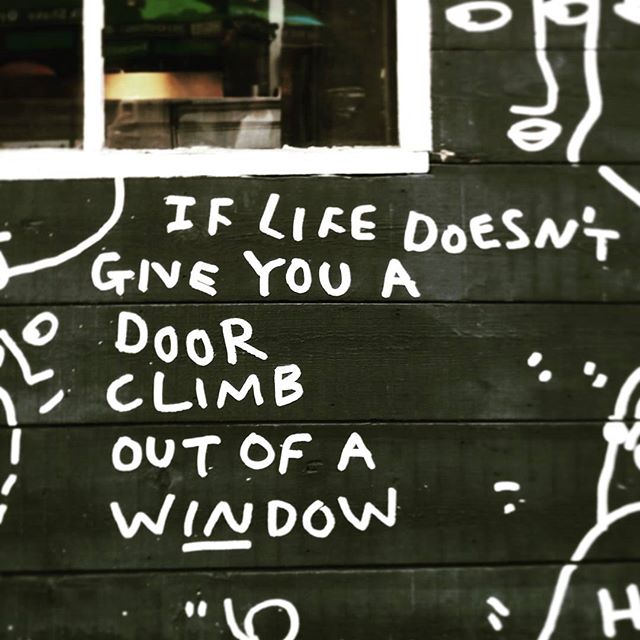 IF LIFE DOESN'T
GIVE YOU A
DOOR
CLIMB
OUT OF A
WINDOW
H